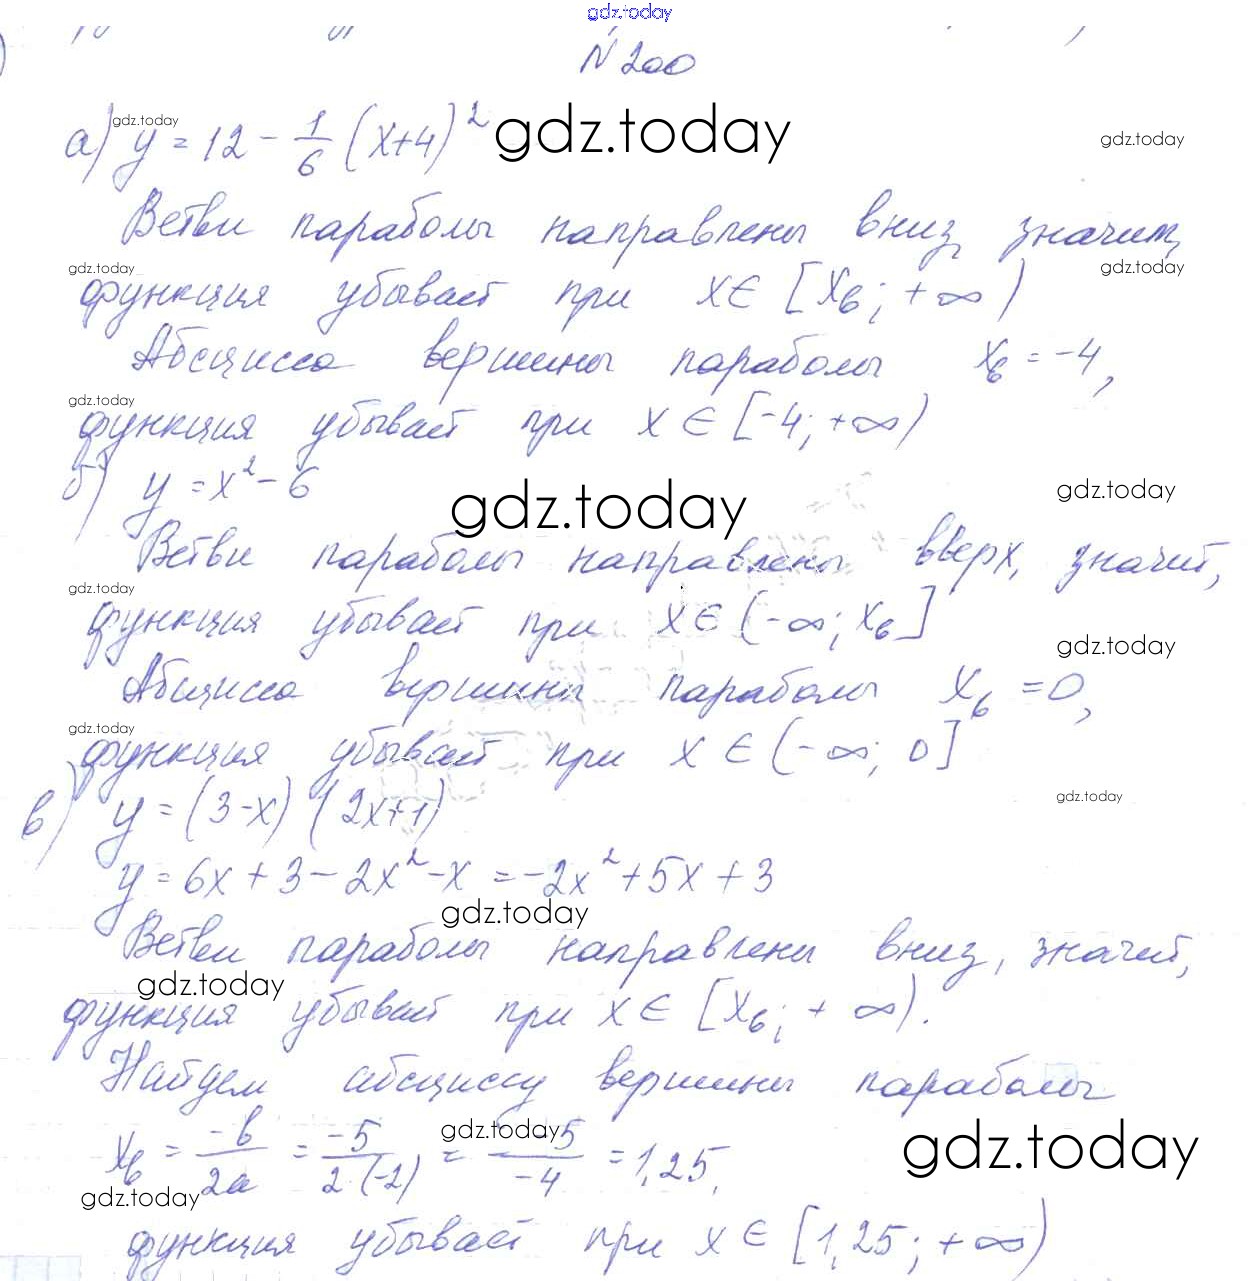 gdz.today
N 200
а) y = 12 - 1/6 (x+4)²
gdz.today gdz.today gdz.today
Ветви параболы направлены вниз, значит,
gdz.today gdz.today
функция убывает при x ∈ [xв; +∞)
Абсцисса вершины параболы xв = -4,
gdz.today
функция убывает при x ∈ [-4; +∞)
б) y = x² - 6
gdz.today gdz.today
Ветви параболы направлены вверх, значит,
gdz.today
функция убывает при x ∈ (-∞; xв]
gdz.today
Абсцисса вершины параболы xв = 0,
gdz.today
функция убывает при x ∈ (-∞; 0]
gdz.today
в) y = (3-x)(2x+1)
y = 6x + 3 - 2x² - x = -2x² + 5x + 3
gdz.today
Ветви параболы направлены вниз, значит,
gdz.today
функция убывает при x ∈ [xв; +∞).
Найдем абсциссу вершины параболы
gdz.today gdz.today
xв = -b/2a = -5/2·(-2) = -5/-4 = 1,25,
gdz.today
функция убывает при x ∈ [1,25; +∞)